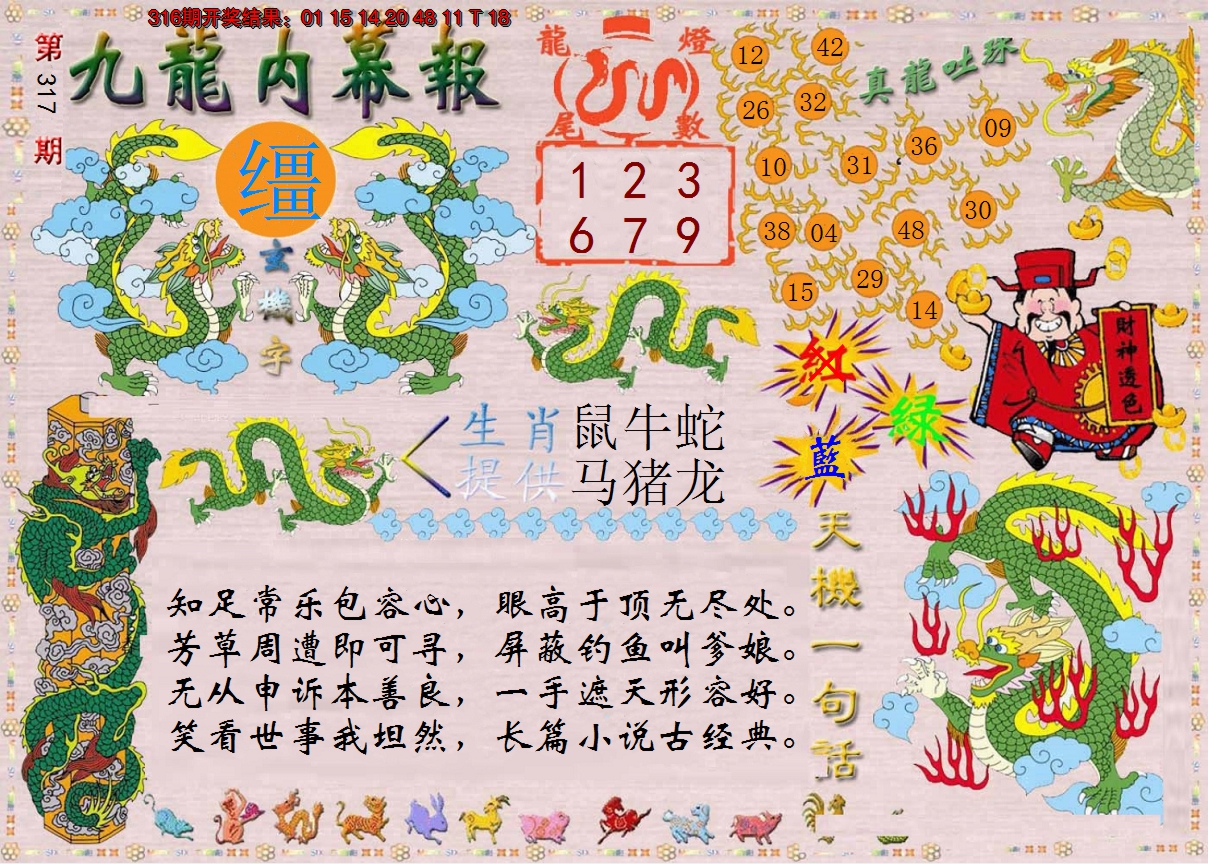 316期开奖结果：01 15 14 20 48 11 T 18
第317期
九龍内幕報
缰
玄機字
龍燈
尾數
1 2 3
6 7 9
真龍吐珠
12 42
26 32
36 09
10 31
30
38 04 48
29
15
14
財神透色
紅
綠
藍
生肖 鼠牛蛇
提供 马猪龙
天機一句話
知足常乐包容心，眼高于顶无尽处。
芳草周遭即可寻，屏蔽钓鱼叫爹娘。
无从申诉本善良，一手遮天形容好。
笑看世事我坦然，长篇小说古经典。